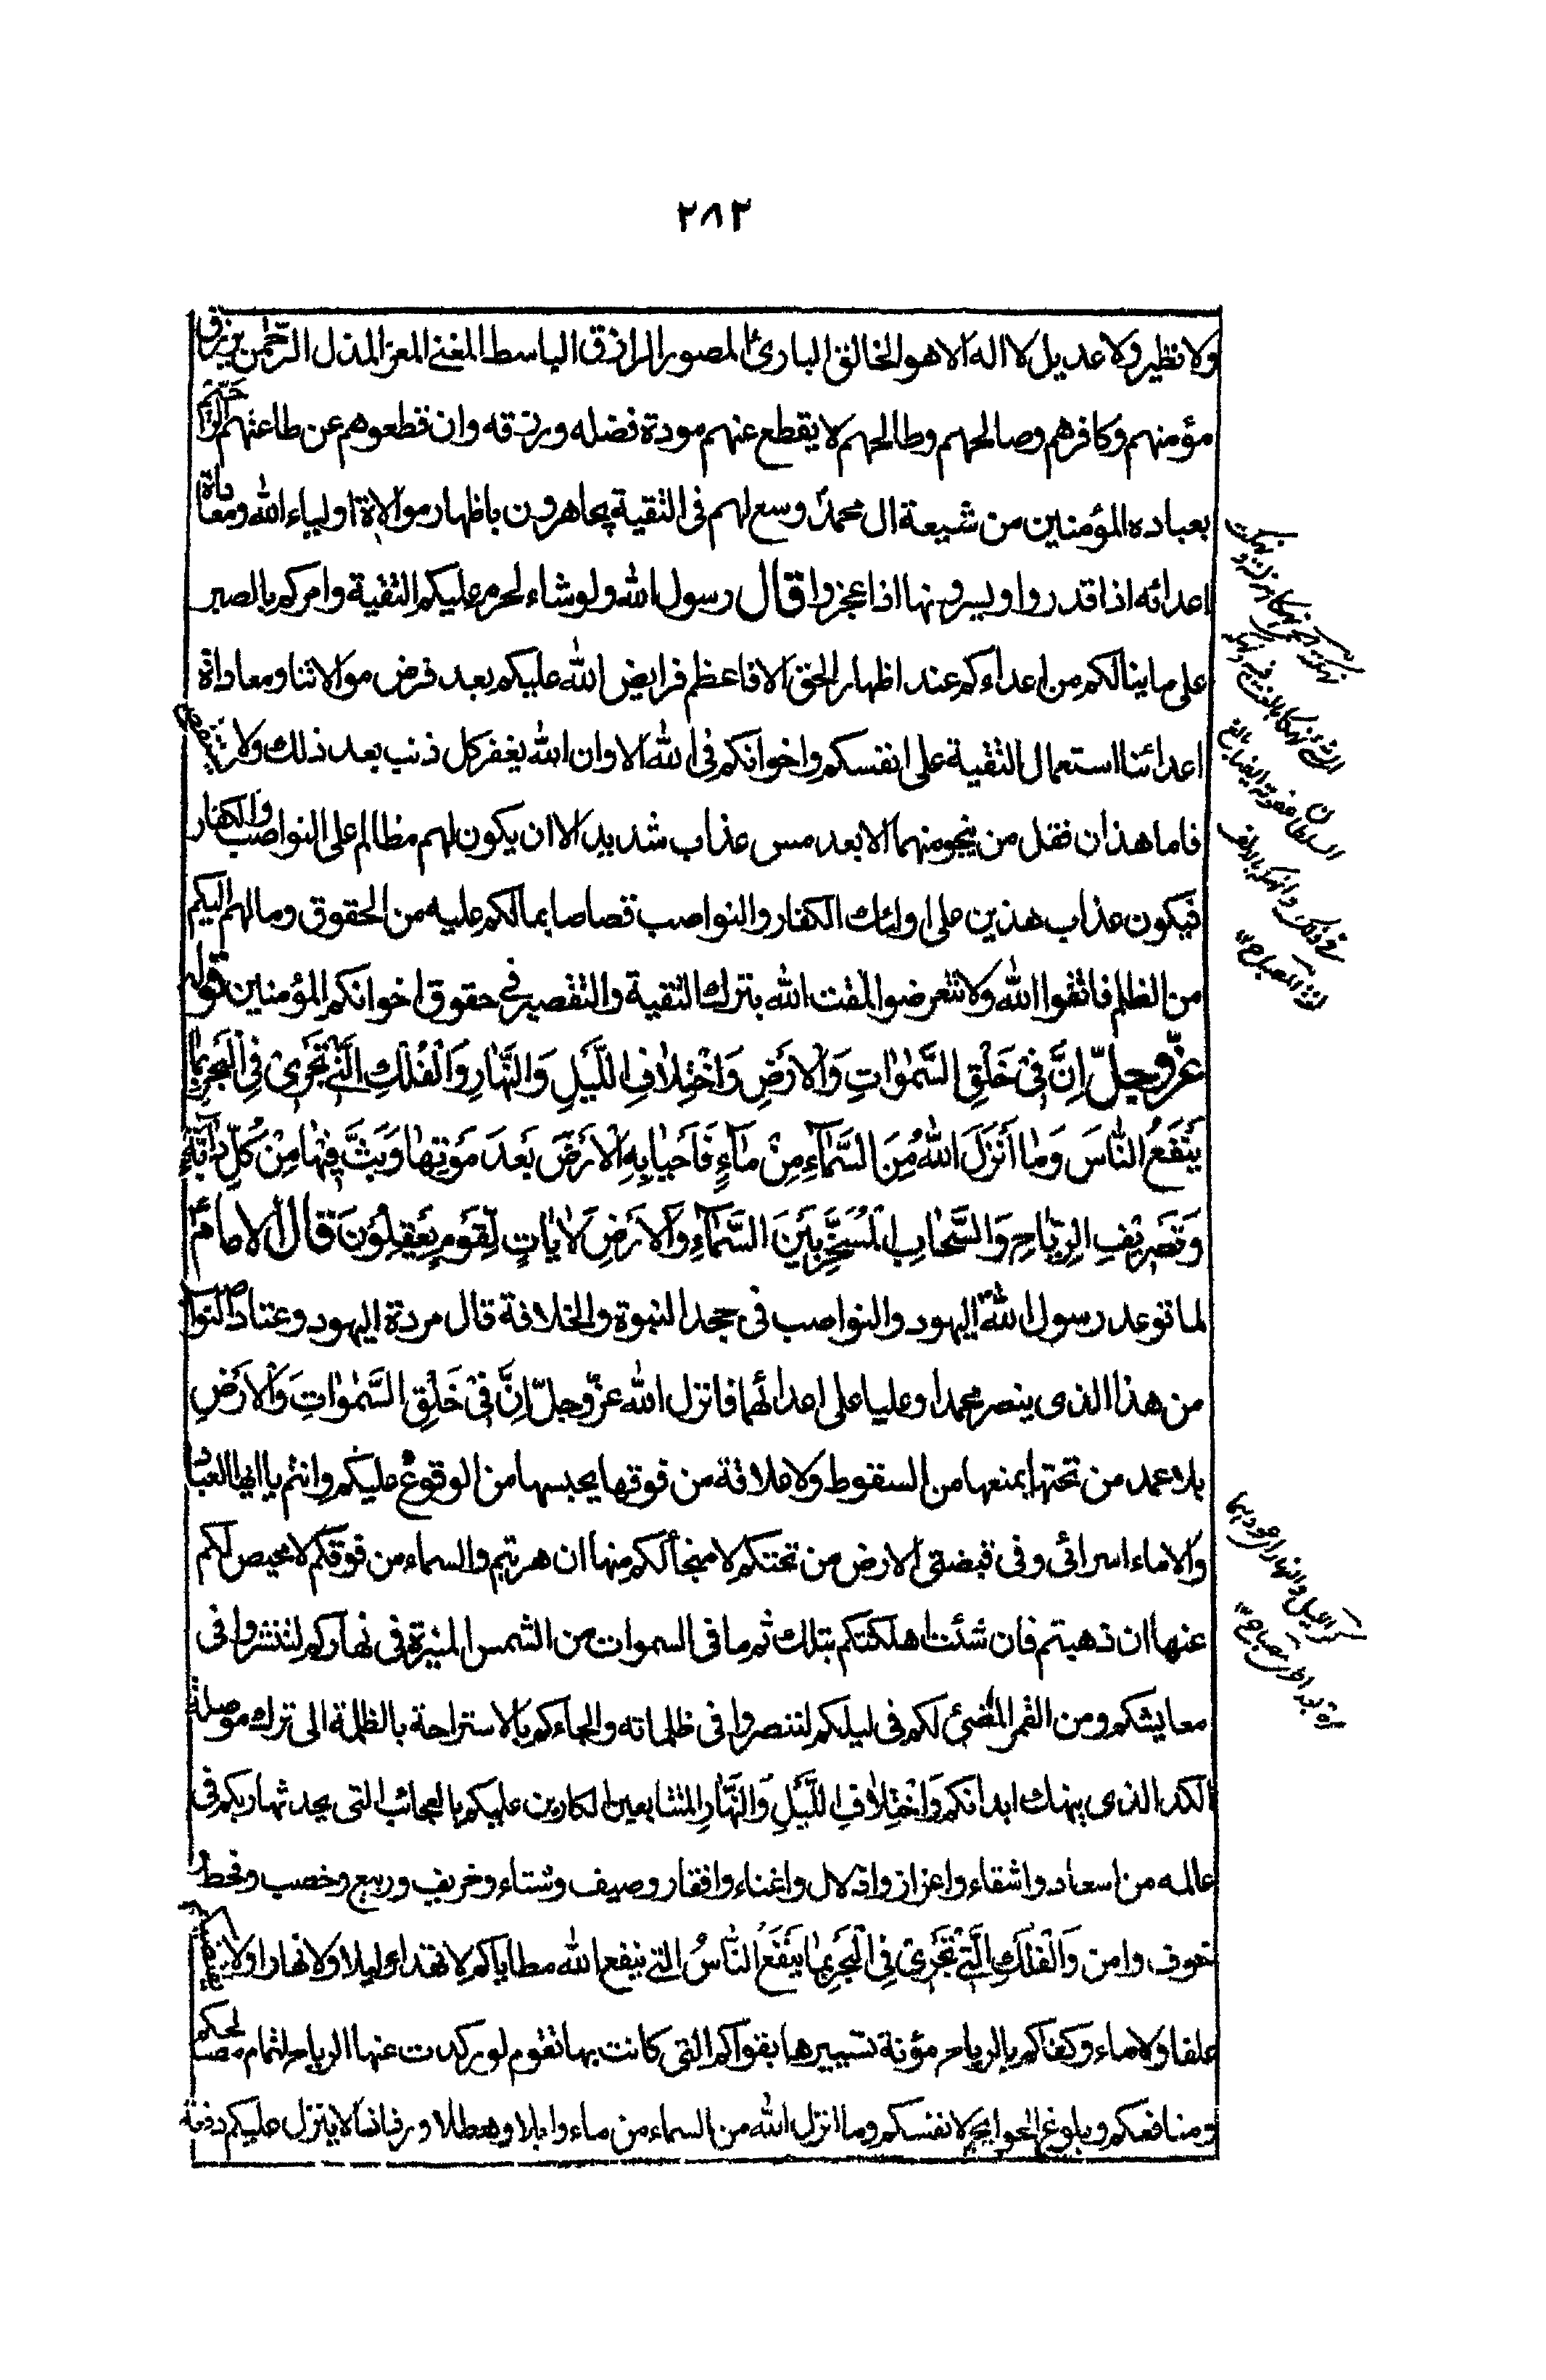 ٢٨٢
ولا نظير ولا عديل لا اله الا هو الخالق البارئ المصور الرازق الباسط المغني المعز المذل الرحمن يرزق
مؤمنهم وكافرهم وصالحهم وطالحهم لا يقطع عنهم مودة فضله ورزقه وان قطعوهم عن طاعتهم الرحيم
بعباده المؤمنين من شيعة ال محمد وسع لهم فى التقية يجاهرون باظهار موالاة اولياء الله ومعاداة
اعدائه اذا قدروا ويسرونها اذا عجزوا قال رسول الله ولو شاء لحرم عليكم التقية وامركم بالصبر
على ما ينالكم من اعداءكم عند اظهار الحق الا فاعظم فرايض الله عليكم بعد فرض موالاتنا ومعاداة
اعدائنا استعمال التقية على انفسكم واخوانكم فى الله الا وان الله يغفر كل ذنب بعد ذلك ولا
فاما هذان فقل من ينجو منهما الا بعد مس عذاب شديد الا ان يكون لهم مظالم على النواصب والكفار
فيكون عذاب هذين على اولئك الكفار والنواصب قصاصا بما لكم عليه من الحقوق وما لهم اليكم
من الظلم فاتقوا الله ولا تتعرضوا لمقت الله بترك التقية والتقصير فى حقوق اخوانكم المؤمنين قوله
عزّ وجلّ اِنَّ فِىْ خَلْقِ السَّمٰوٰاتِ وَالْاَرْضِ وَاخْتِلٰافِ اللَّيْلِ وَالنَّهٰارِ وَالْفُلْكِ الَّتِىْ تَجْرِىْ فِى الْبَحْرِ بِمٰا
يَنْفَعُ النّٰاسَ وَمٰا اَنْزَلَ اللّٰهُ مِنَ السَّمٰآءِ مِنْ مٰآءٍ فَاَحْيٰا بِهِ الْاَرْضَ بَعْدَ مَوْتِهٰا وَبَثَّ فِيْهٰا مِنْ كُلِّ دٰابَّةٍ
وَتَصْرِيْفِ الرِّيٰاحِ وَالسَّحٰابِ الْمُسَخَّرِ بَيْنَ السَّمٰآءِ وَالْاَرْضِ لَاٰيٰاتٍ لِقَوْمٍ يَعْقِلُوْنَ قال الامام
لما توعد رسول الله اليهود والنواصب فى جحد النبوة والخلافة قال مردة اليهود وعتاة النواصب
من هذا الذى ينصر محمدا وعليا على اعدائهما فانزل الله عزّ وجلّ اِنَّ فِىْ خَلْقِ السَّمٰوٰاتِ وَالْاَرْضِ
بلا عمد من تحتها يمنعها من السقوط ولا علاقة من فوقها يحبسها من الوقوع عليكم وانتم يا ايها العباد
والاماء اسرائى وفى قبضتى الارض من تحتكم لا منجأ لكم منها ان هربتم والسماء من فوقكم لا محيص لكم
عنها ان ذهبتم فان شئت اهلكتكم بتلك ثم ما فى السموات من الشمس المنيرة فى نهاركم لتنتشروا فى
معايشكم ومن القمر المضيئ لكم فى ليلكم لتنصروا فى ظلماته والجاءكم بالاستراحة بالظلمة الى ترك مواصلة
الكد الذى ينهك ابدانكم وَاخْتِلٰافِ اللَّيْلِ وَالنَّهٰارِ المتتابعين الكارين عليكم بالعجائب التى يحدثها ربكم فى
عالمه من اسعاد واشقاء واعزاز واذلال واغناء وافقار وصيف وشتاء وخريف وربيع وخصب وقحط
خوف وامن وَالْفُلْكِ الَّتِىْ تَجْرِىْ فِى الْبَحْرِ بِمٰا يَنْفَعُ النّٰاسُ التى ينفع الله مطاياكم لا تهدأ ليلا ولا نهارا ولا
علفا ولا ماء وكفاكم بالرياح مؤنة تسييرها بقواكم التى كانت بها تقوم لو ركدت عنها الرياح لتمام مصالحكم
ومنافعكم وبلوغ الحوايج لانفسكم وما انزل الله من السماء من ماء وابلا وهطلا ورذاذا لا ينزل عليكم دفعة